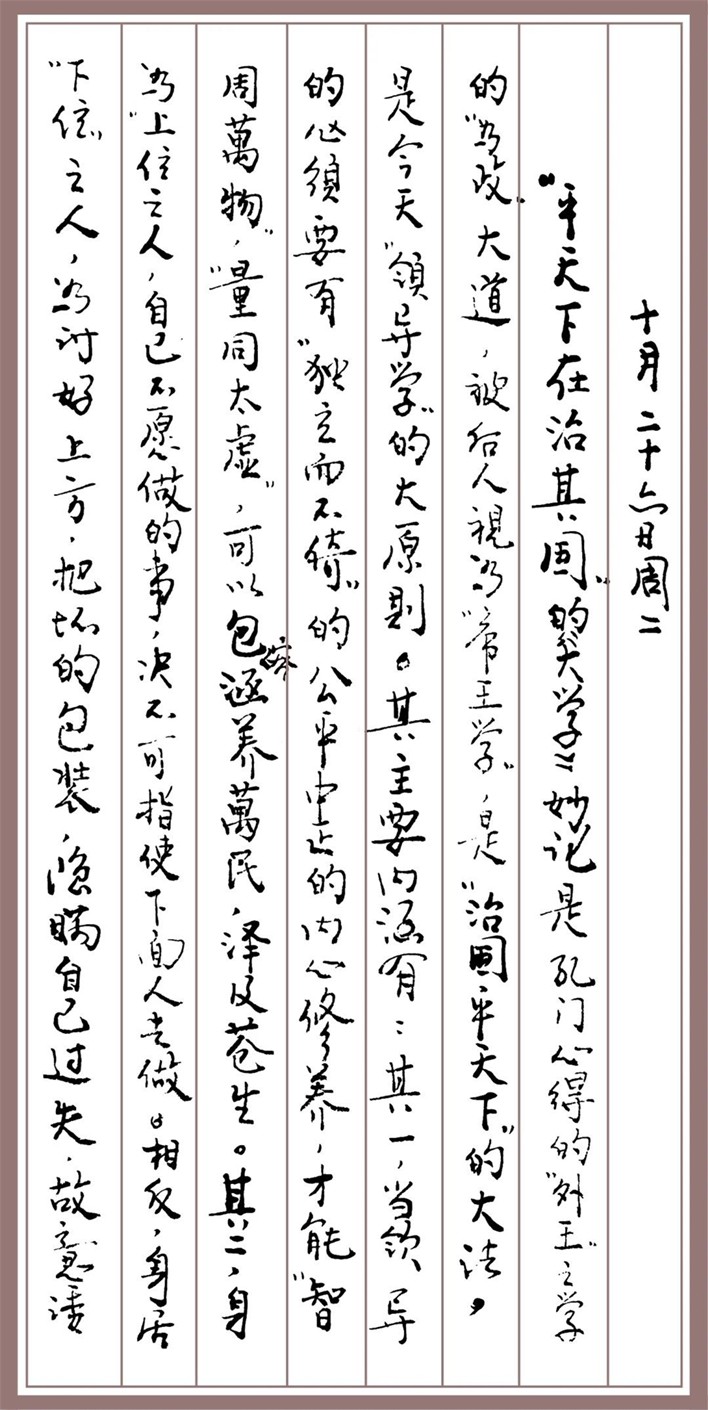 十月二十六日周二
“平天下在治其国”的大学之妙说是孔门心得的“外王”之学
的“为政”大道，被后人视为“帝王学”，是“治国平天下”的大法，
是今天“领导学”的大原则。其主要内涵有：其一，当领导
的必须要有“独立而不倚”的公平中正的内心修养，才能“智
周萬物”，“量同太虚”，可以包容涵养萬民，泽及苍生。其二，身
为“上位之人，自己不愿做的事，决不可指使下面人去做。相反，身居
“下位”之人，为讨好上方，把坏的包装，隐瞒自己过失，故意